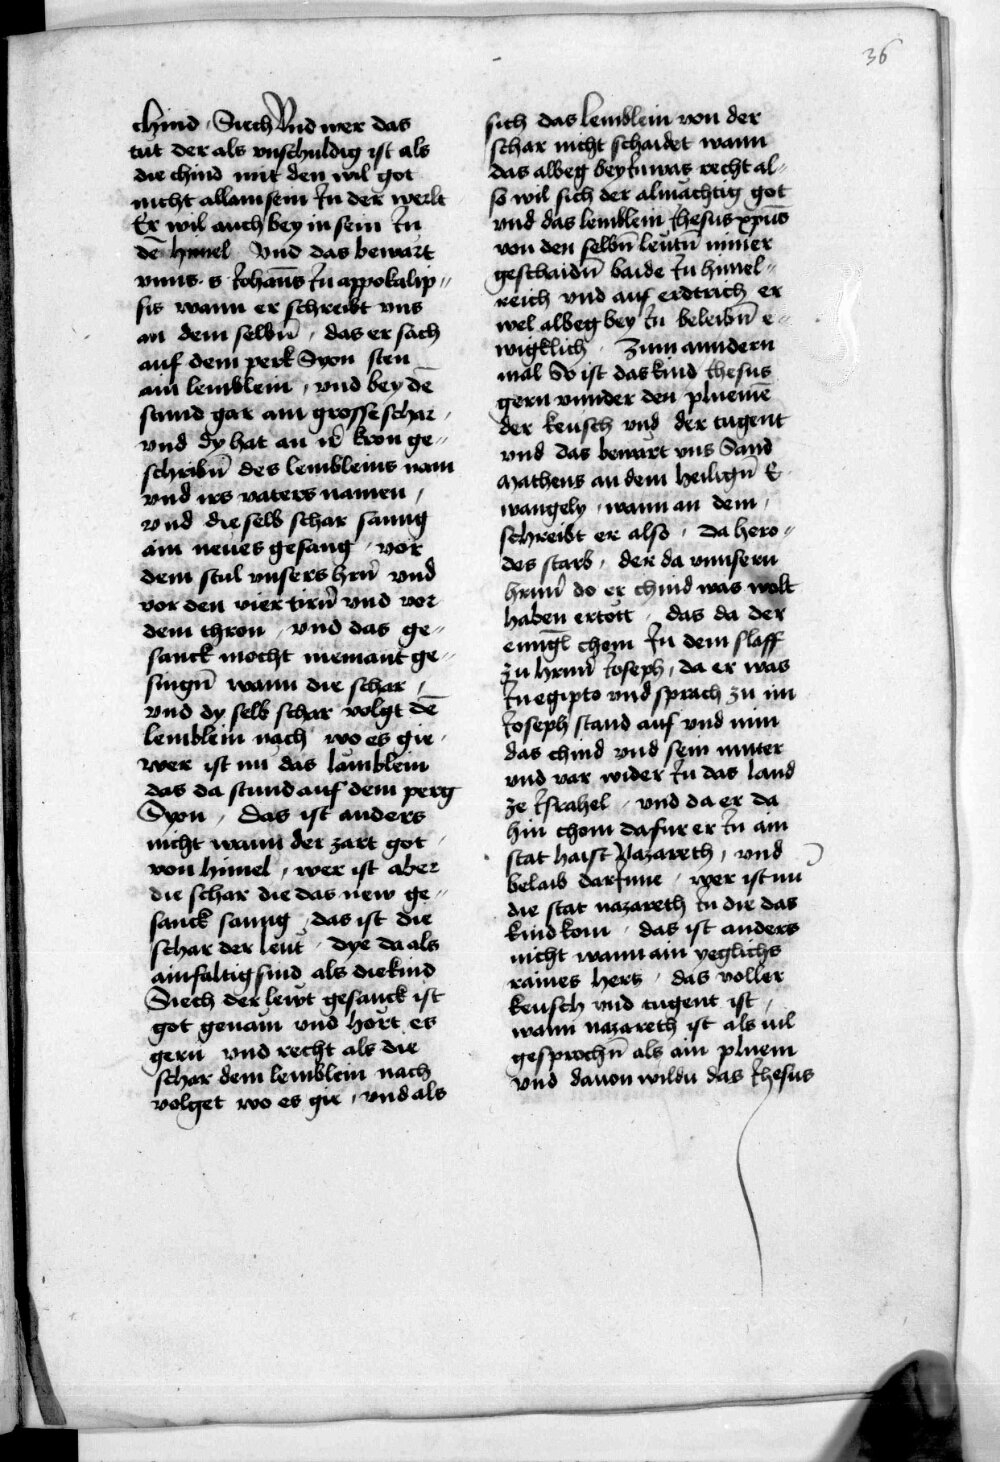 36
chind · Siech Vnd wer das
tut der als vnschuldig ist als
die chind mit den wil got
nicht allain sein In der werlt
Er wil auch bey in sein In
dē himel Vnd das bewart
vnns · s Johan̄s In appokalip〃
sis wann er schreibt vns
an dem selbn̄ , das er sach
auf dem perk Syon sten
ain lemblein , vnd bey dē
stund gar ain grosse schar ,
vnd dy hat an ir kron ge〃
schribn̄ des lembleins nam
vnd irs vaters namen ,
vnd die selb schar sanng
ain neues gesang , vor
dem stul vnsers hrn̄ vnd
vor den vier tirn̄ vnd vor
dem thron , vnd das ge〃
sanck mocht niemant ge〃
singn̄ wann die schar ,
vnd dy selb schar volgt dē
lemblein nach wo es gie ,
wer ist nu das lamblein
das da stund auf dem perg
Syon , das ist anders
nicht wann der zart got ,
von himel , wer ist aber
die schar die das new ge〃
sanck sanng , das ist die
schar der leut , dye da als
ainfaltig sind als die kind
Siech der lewt gesanck ist
got genam vnd hort es
gern vnd recht als die
schar dem lemblein nach
volget wo es gie , vnd als
sich das lemblein von der
schar nicht schaidet wann
das albeg bey In was recht al〃
so wil sich der almachtig got
vnd das lemblein Jhesus xpūs
von den selbn̄ leutn̄ nimer
geschaidn̄ baide In himel〃
reich vnd auf erdtrich er
wel albeg bey In beleibn̄ e〃
wigklich , Zum anndern
mal So ist das kind Jhesus
gern vnnder den pluemē
der keusch vnd der tugent
vnd das bewart vns Sand
Matheus an dem heilign̄ E
wangely , wann an dem ,
schreibt er also , da hero〃
des starb , der da vnnsern
hrnn̄ do er chind was wolt
haben ertott , das da der
enngl̄ chom In dem slaff
zu hrnn̄ Joseph , da er was
In egipto vnd sprach zu im
Joseph stand auf vnd nim
das chind vnd sein muter
vnd var wider In das land
ze Israhel , vnd da er da
hin chom da fur er In ain
stat haist Nazareth , vnd
belaib darInne , wer ist nu
die stat nazareth In die das
kind kom , das ist anders
nicht wann ain yeglichs
raines hers , das voller
keusch vnd tugent ist ,
wann nazareth ist als uil
gesprochn̄ als ain pluem
vnd dauon wildu das Jhesus